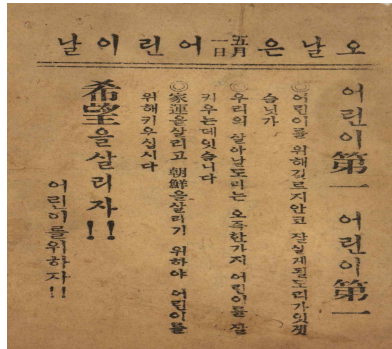 오날은 五月一日 어린이날
어린이 第一 어린이 第一
◎어린이를 위해길르지안코 잘살게될도리가잇겟
슴닛가
◎우리의 살아날도리는 오즉한가지 어린이를 잘
키우는데잇슴니다
◎家運을살리고 朝鮮을살리기 위하야 어린이를
위해키우십시다
希望을살리자!!
어린이를위하자!!